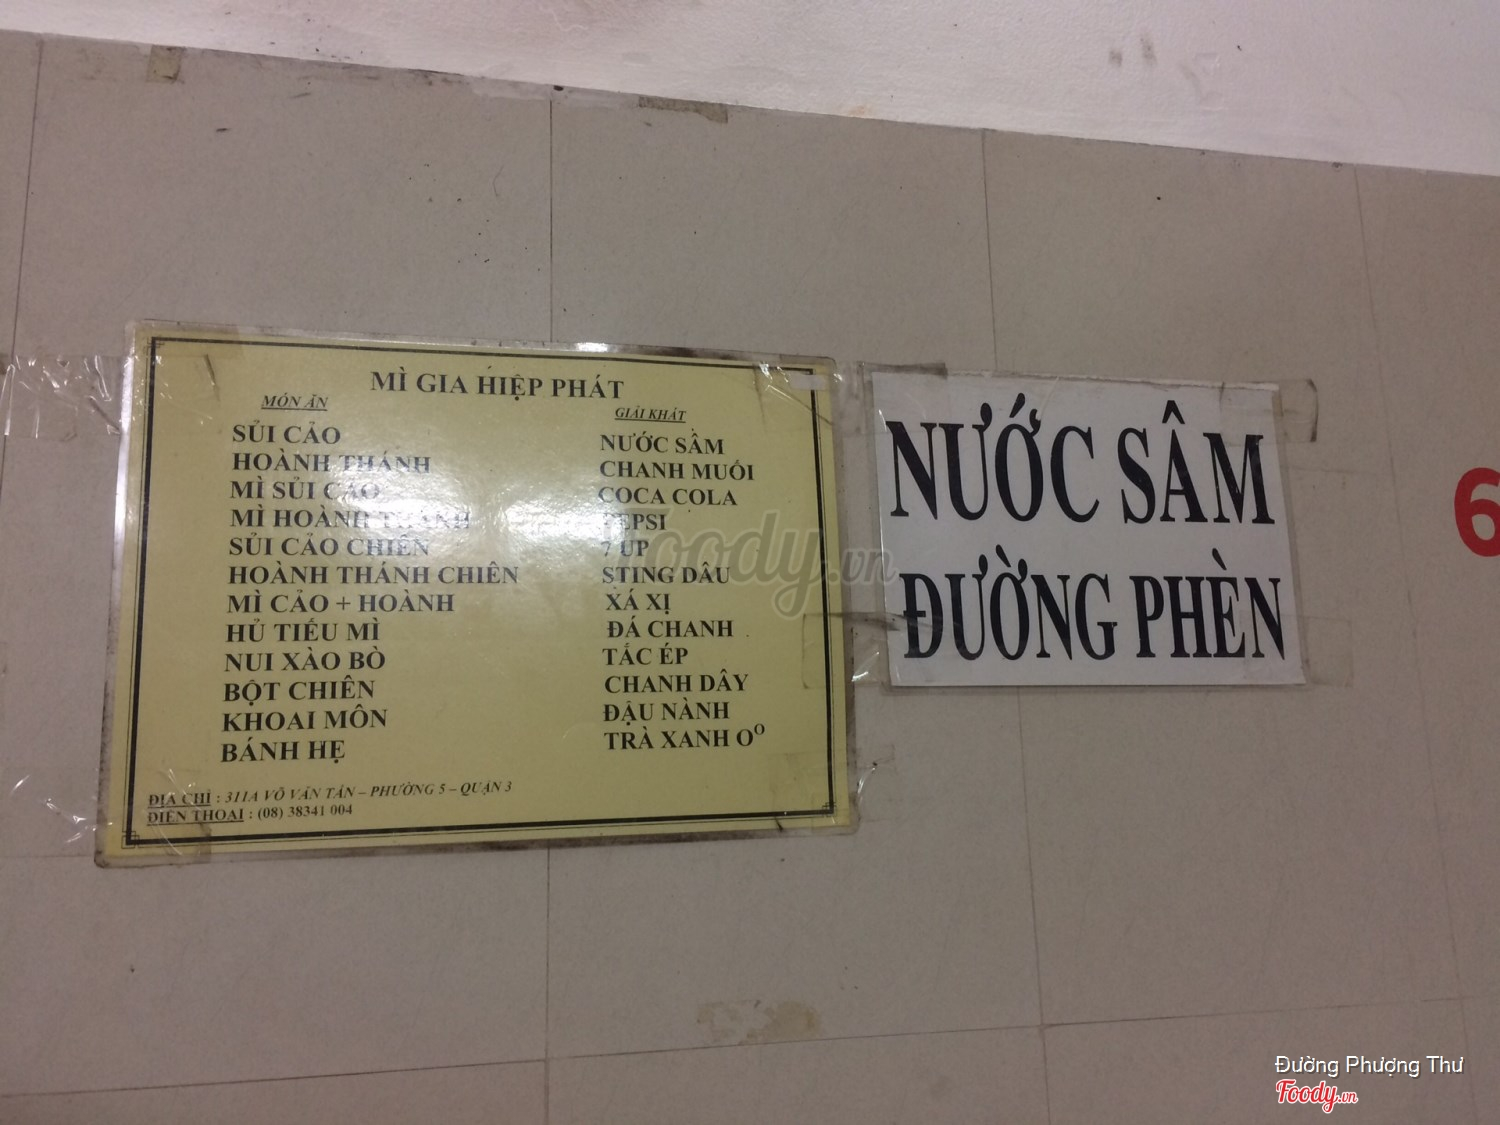 MÌ GIA HIỆP PHÁT
MÓN ĂN
SỦI CẢO
HOÀNH THÁNH
MÌ SỦI CẢO
MÌ HOÀNH THÁNH
SỦI CẢO CHIÊN
HOÀNH THÁNH CHIÊN
MÌ CẢO + HOÀNH
HỦ TIẾU MÌ
NUI XÀO BÒ
BỘT CHIÊN
KHOAI MÔN
BÁNH HẸ
GIẢI KHÁT
NƯỚC SÂM
CHANH MUỐI
COCA COLA
PEPSI
7 UP
STING DÂU
XÁ XỊ
ĐÁ CHANH
TẮC ÉP
CHANH DÂY
ĐẬU NÀNH
TRÀ XANH Oº
ĐỊA CHỈ : 311A VÕ VĂN TẦN – PHƯỜNG 5 – QUẬN 3
ĐIỆN THOẠI : (08) 38341 004
NƯỚC SÂM
ĐƯỜNG PHÈN
6
Foody.vn
Đường Phượng Thư
Foody.vn